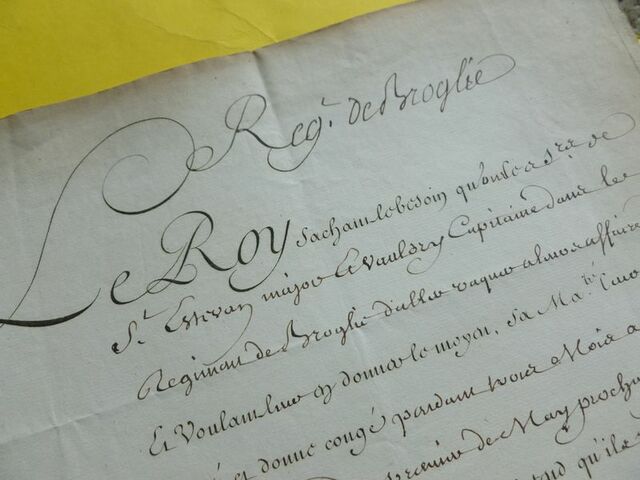 Reg.t de Broglie
Le Roy sachant le besoin qu'ont les s.rs de
S.t Estevan major et Vauldry Capitaine dans le
Regiment de Broglie d'aller vaquer a leurs affaires
Et Voulant leur en donner le moyen, Sa Ma.té leur
et donne congé pendant trois Mois a
de May procha
qu'ils